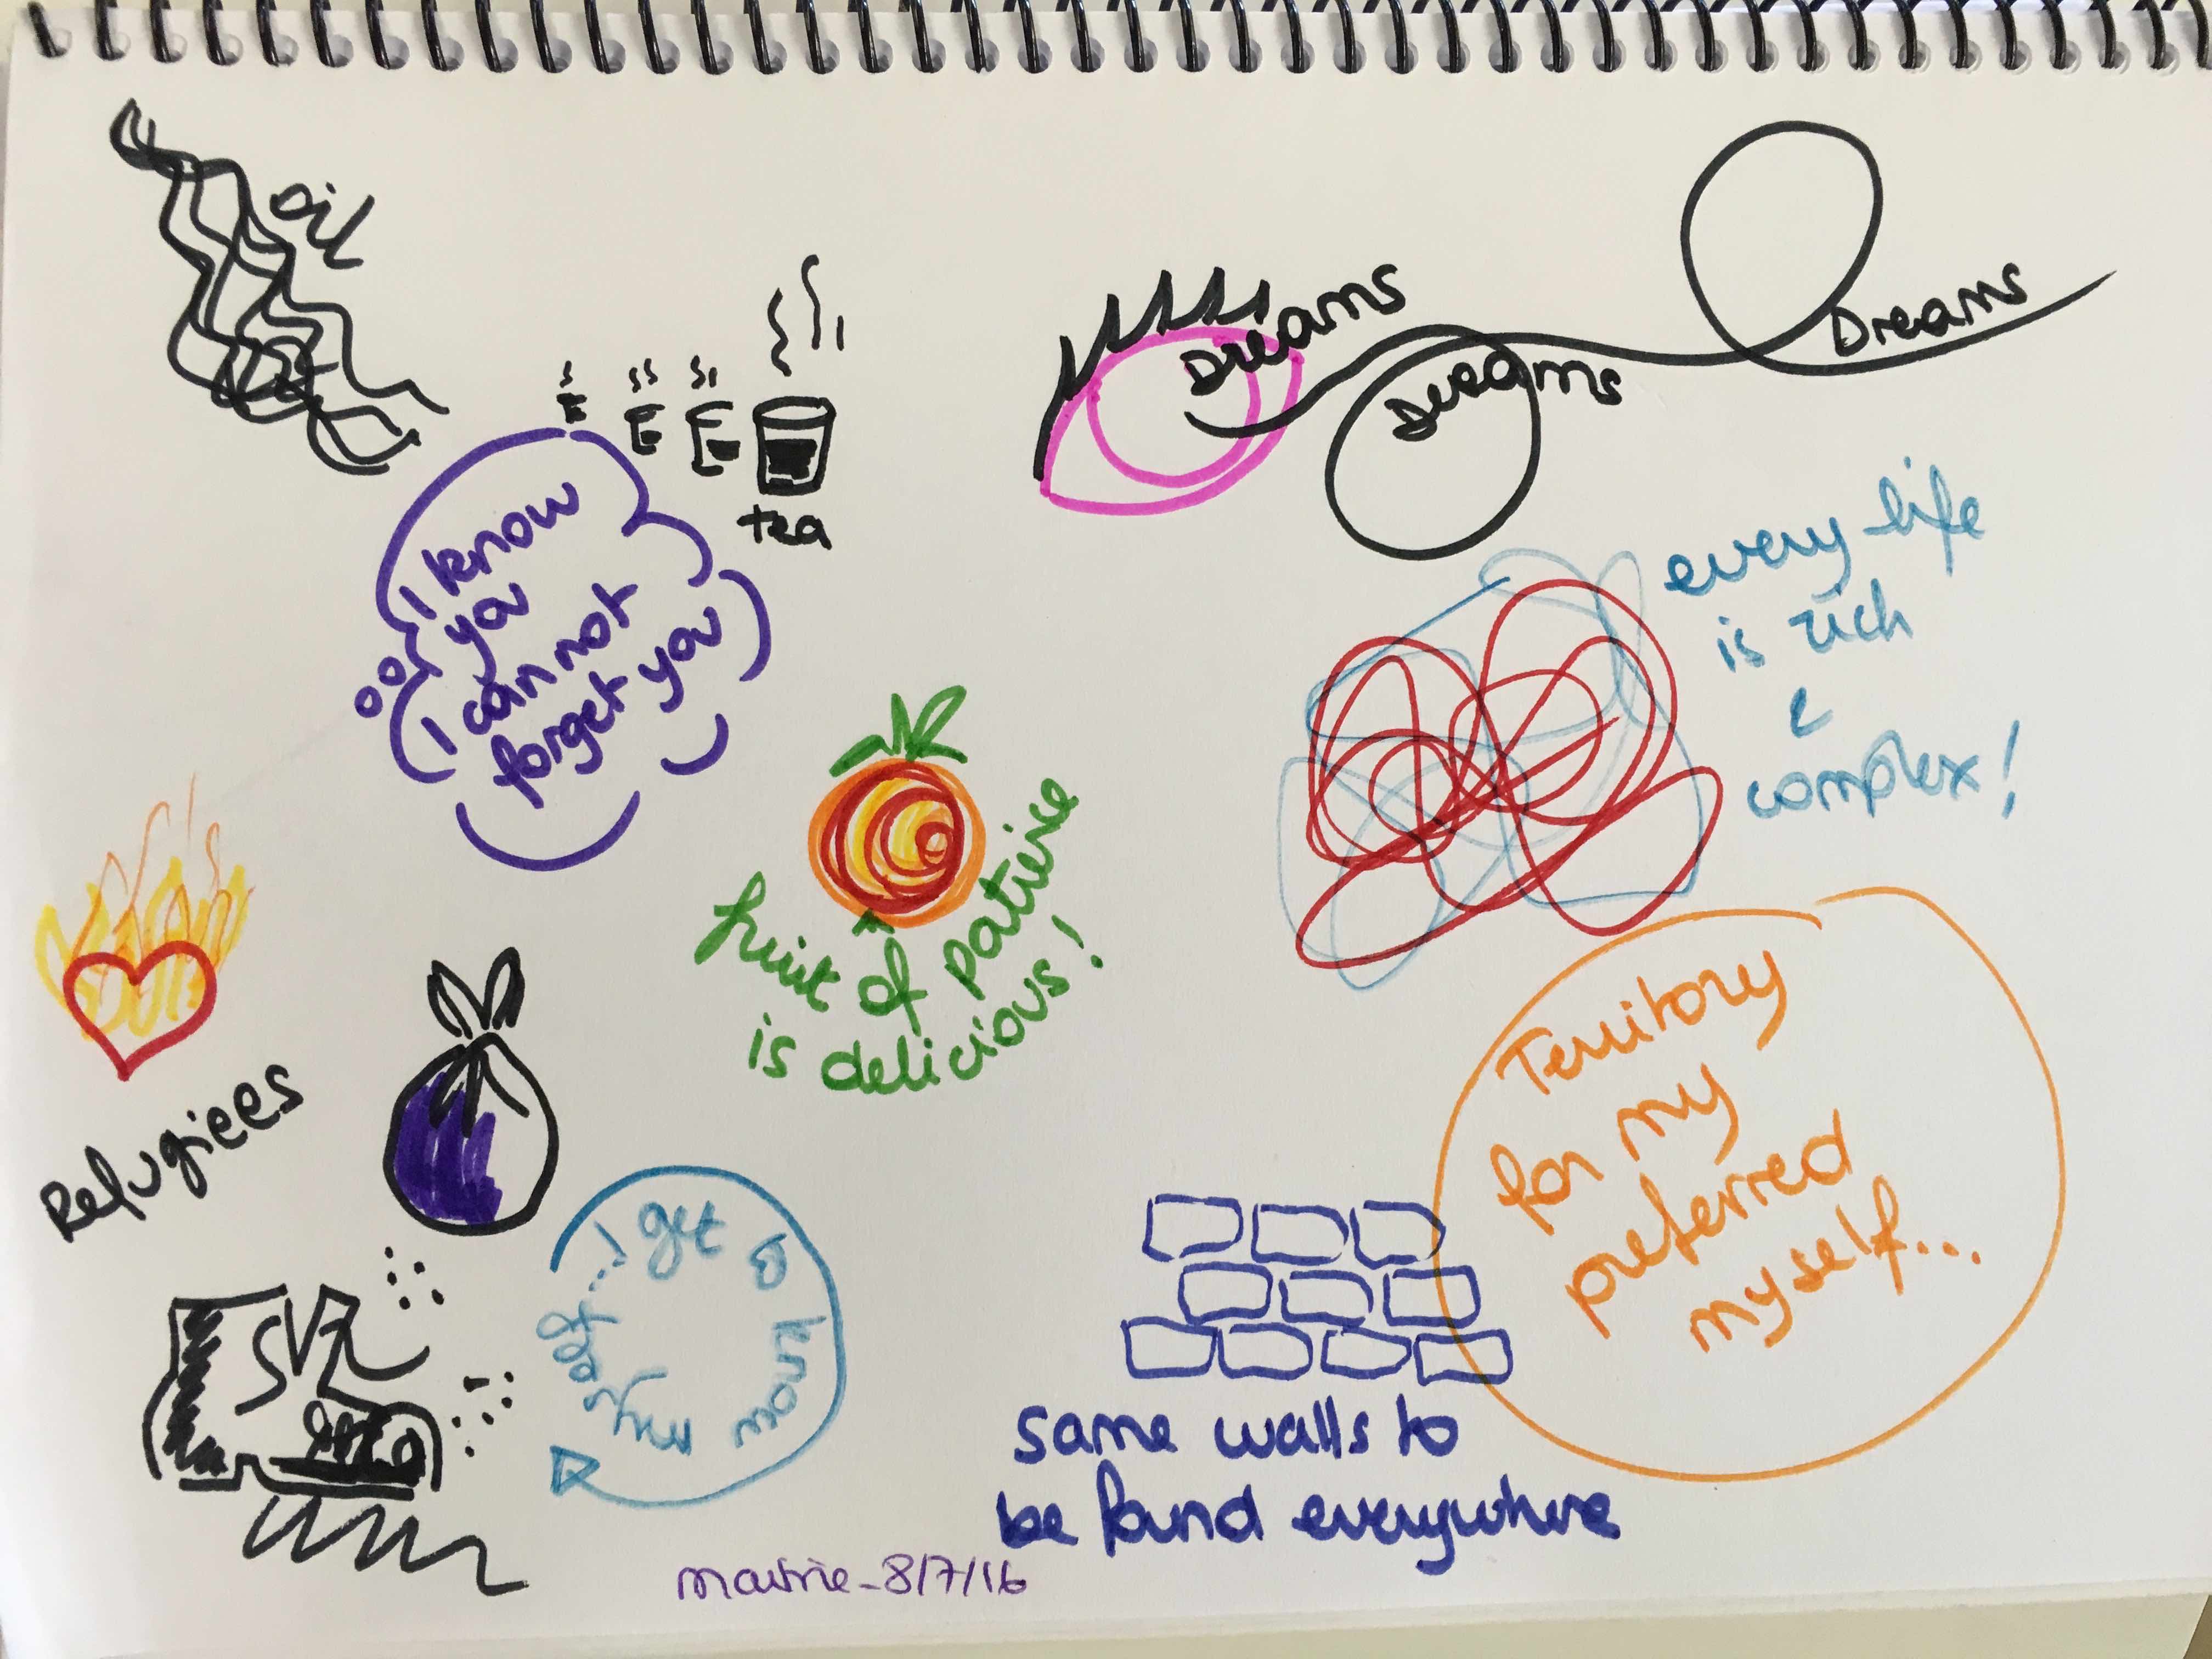 oil
tea
Dreams
Dreams
Dreams
I know
you
I can not
forget you
every life
is rich
&
complex!
fruit of patience
is delicious!
Refugiees
I get to know myself....
Territory
for my
preferred
myself...
same walls to
be found everywhere
8/7/16